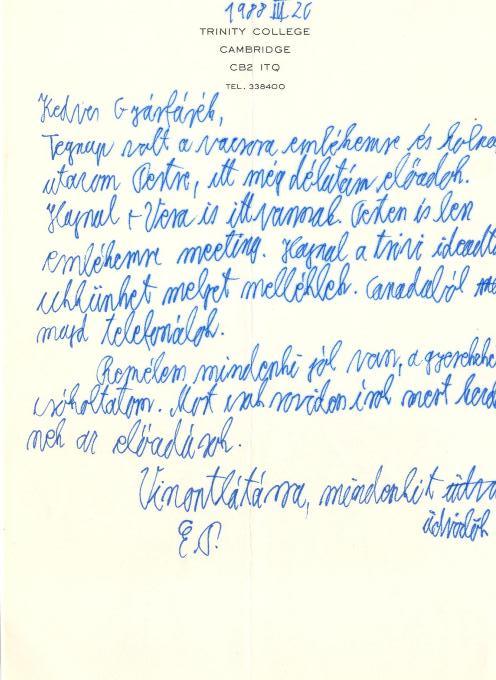 1988 III 26
TRINITY COLLEGE
CAMBRIDGE
CB2 1TQ
TEL. 338400
Kedves Gyárfásék,
Tegnap volt a vacsora emlékemre és holnap
utazom Pestre, itt még délután előadok.
Hajnal + Vera is itt vannak. Pesten is len
emlékemre meeting. Hajnal a
melyet mellékelek. Canadából
majd telefonálok.
Remélem mindenki jól van, a gyerekeke
csókoltatom. Most csak röviden írok mert kezdőd
nek az előadások.
Viszontlátásra, mindenkit
üdvözlök
E.P.